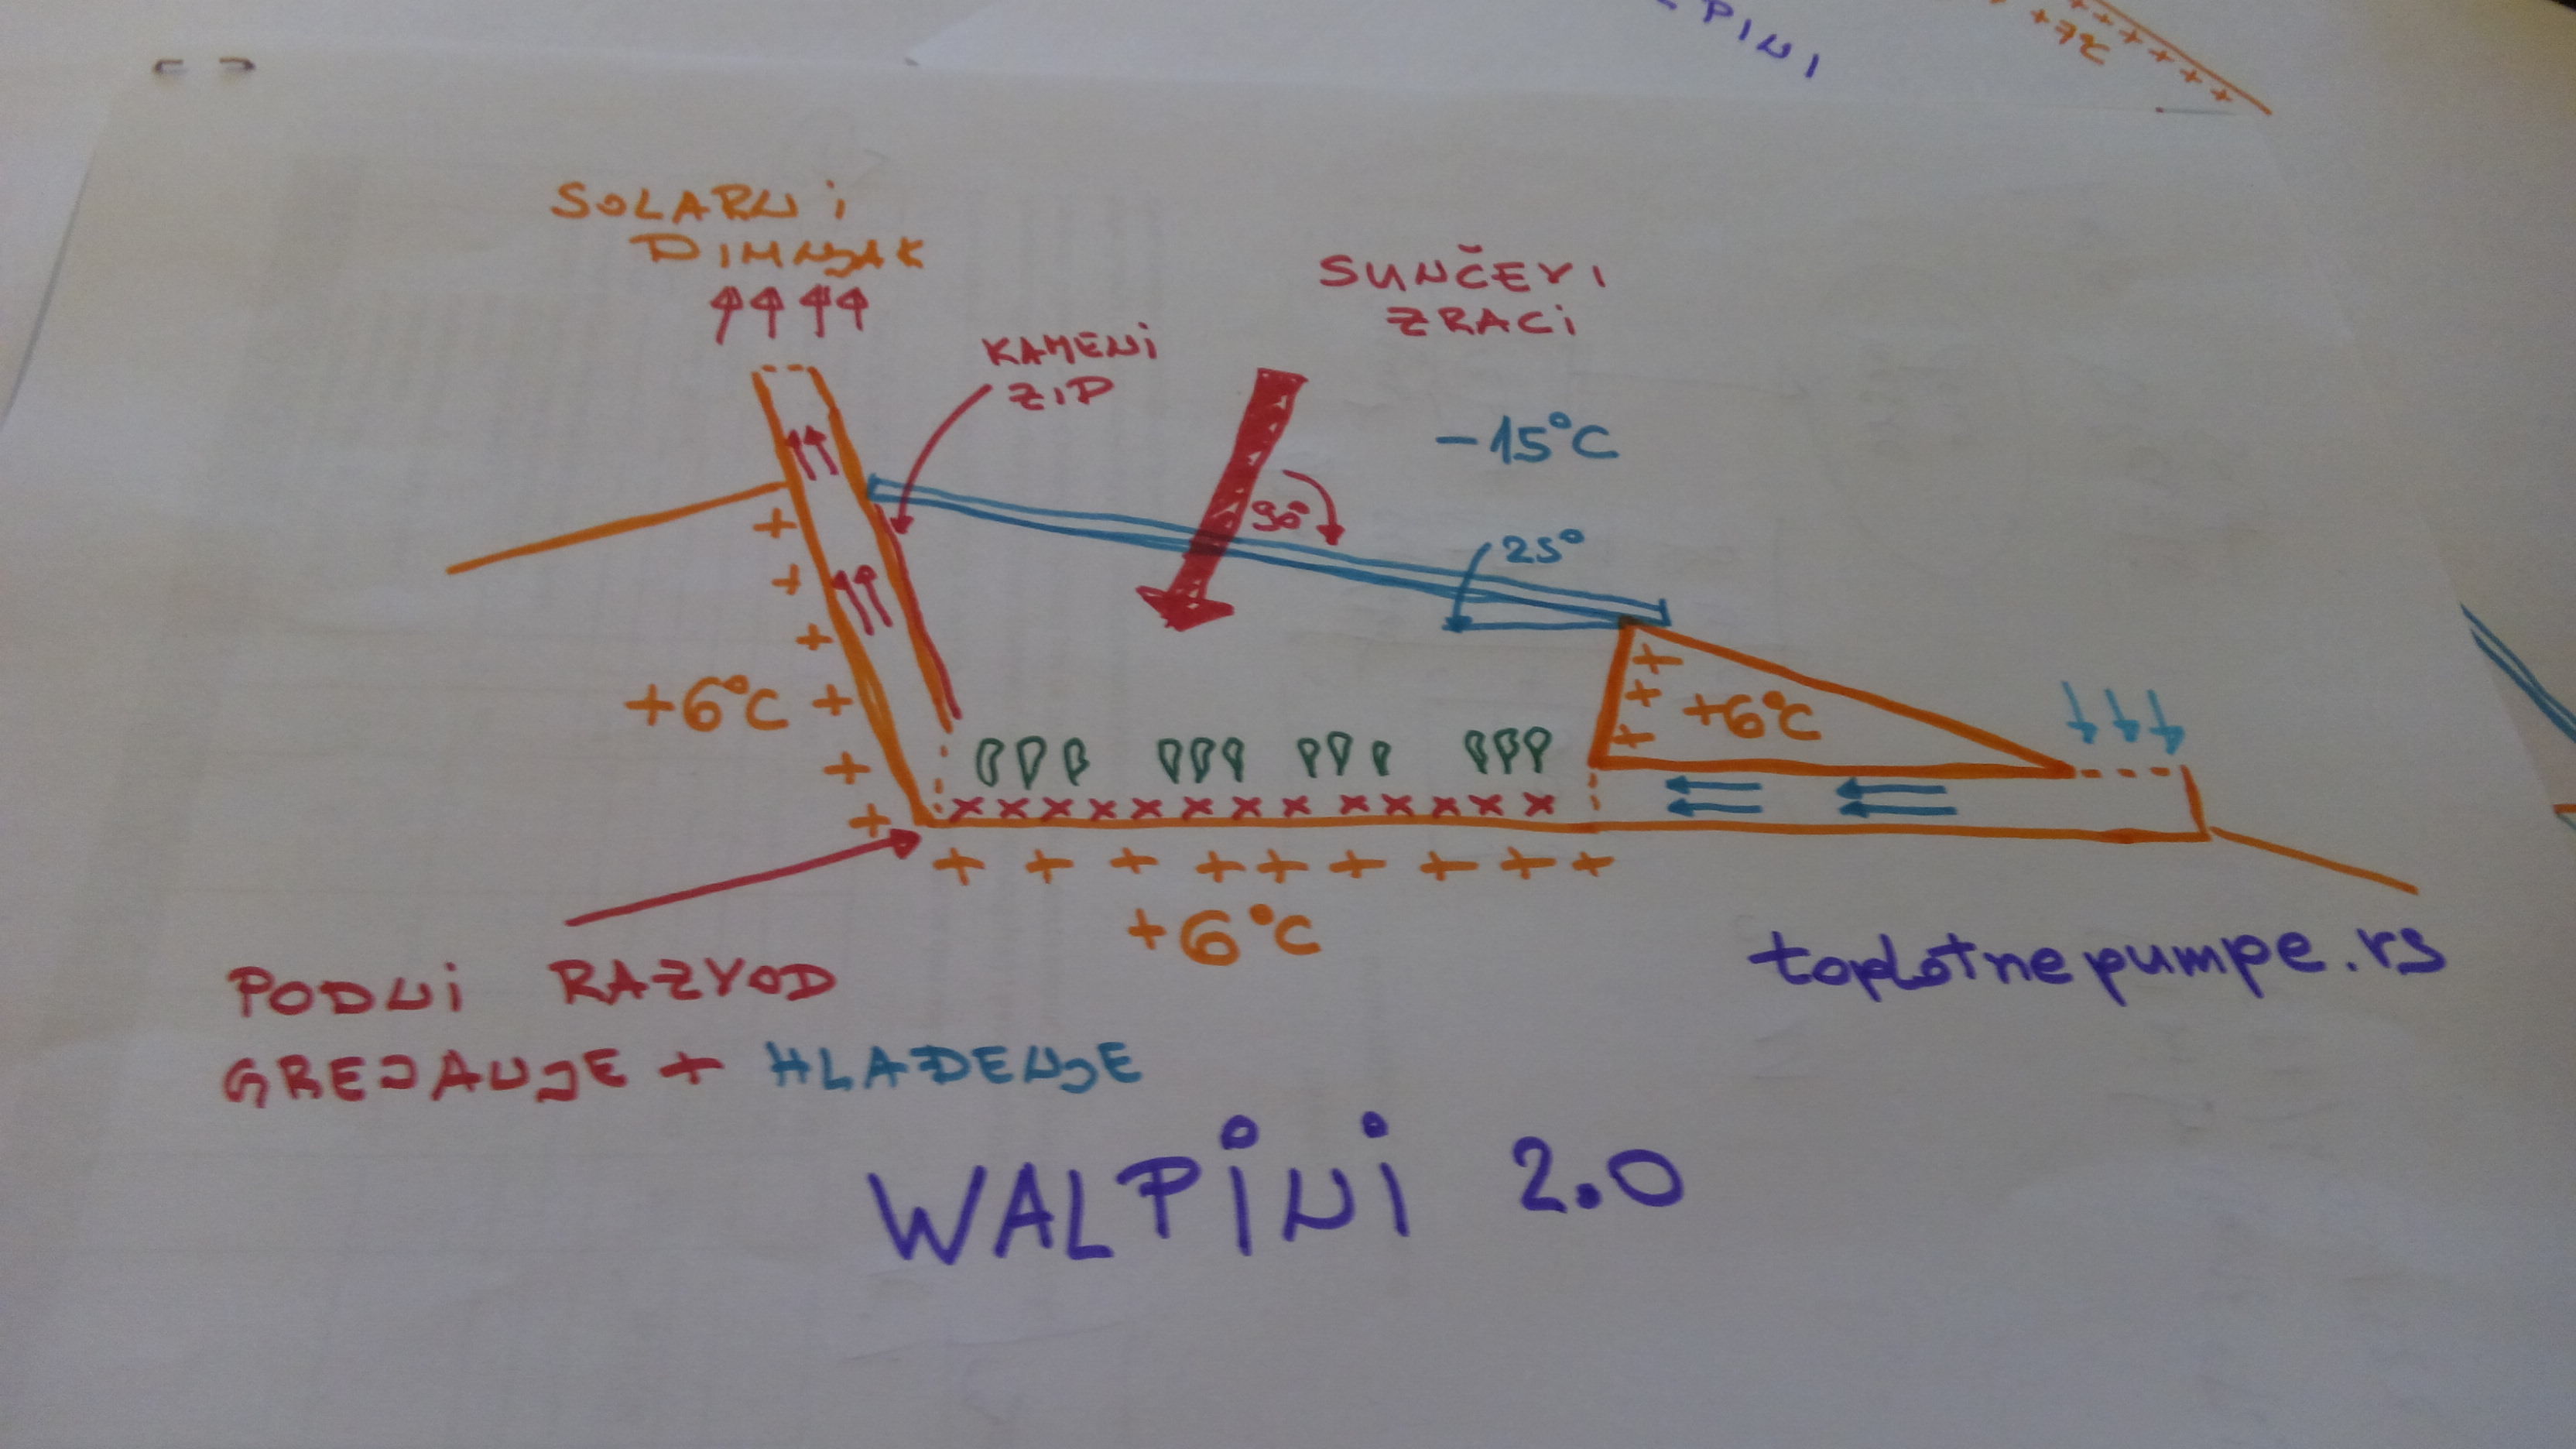 PINI
+7°C
SOLARNI
DIMNJAK
SUNČEVI
ZRACI
KAMENI
ZID
-15°C
90°
25°
+6°C
+6°C
+6°C
toplotnepumpe.rs
PODNI RAZVOD
GREJANJE + HLAĐENJE
WALPINI 2.0